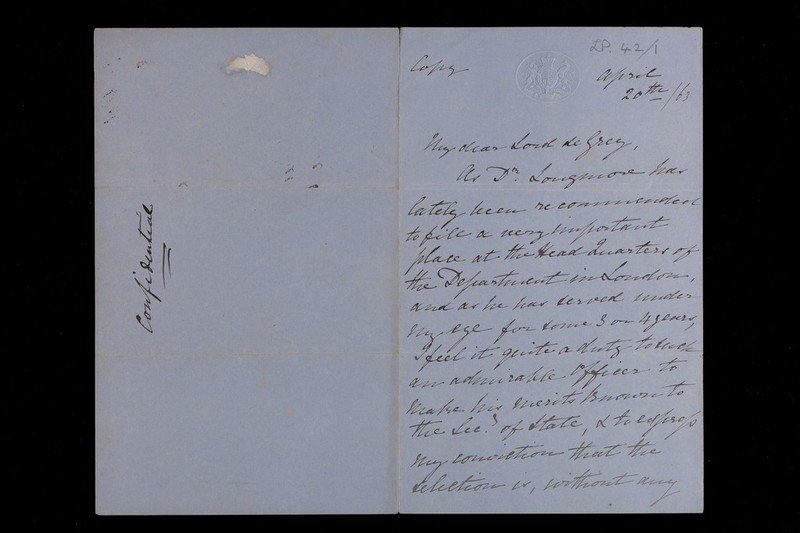 Confidential
LP. 42/1
Copy
April
20th/63
My dear Lord de Grey,
As Dr. Longmore has
lately been recommended
to fill a very important
place at the Head Quarters of
the Department in London,
and as he has served under
my eye for some 3 or 4 years,
I feel it quite a duty to such
an admirable Officer to
make his merits known to
the Secy of State, & to express
my conviction that the
selection is, without any